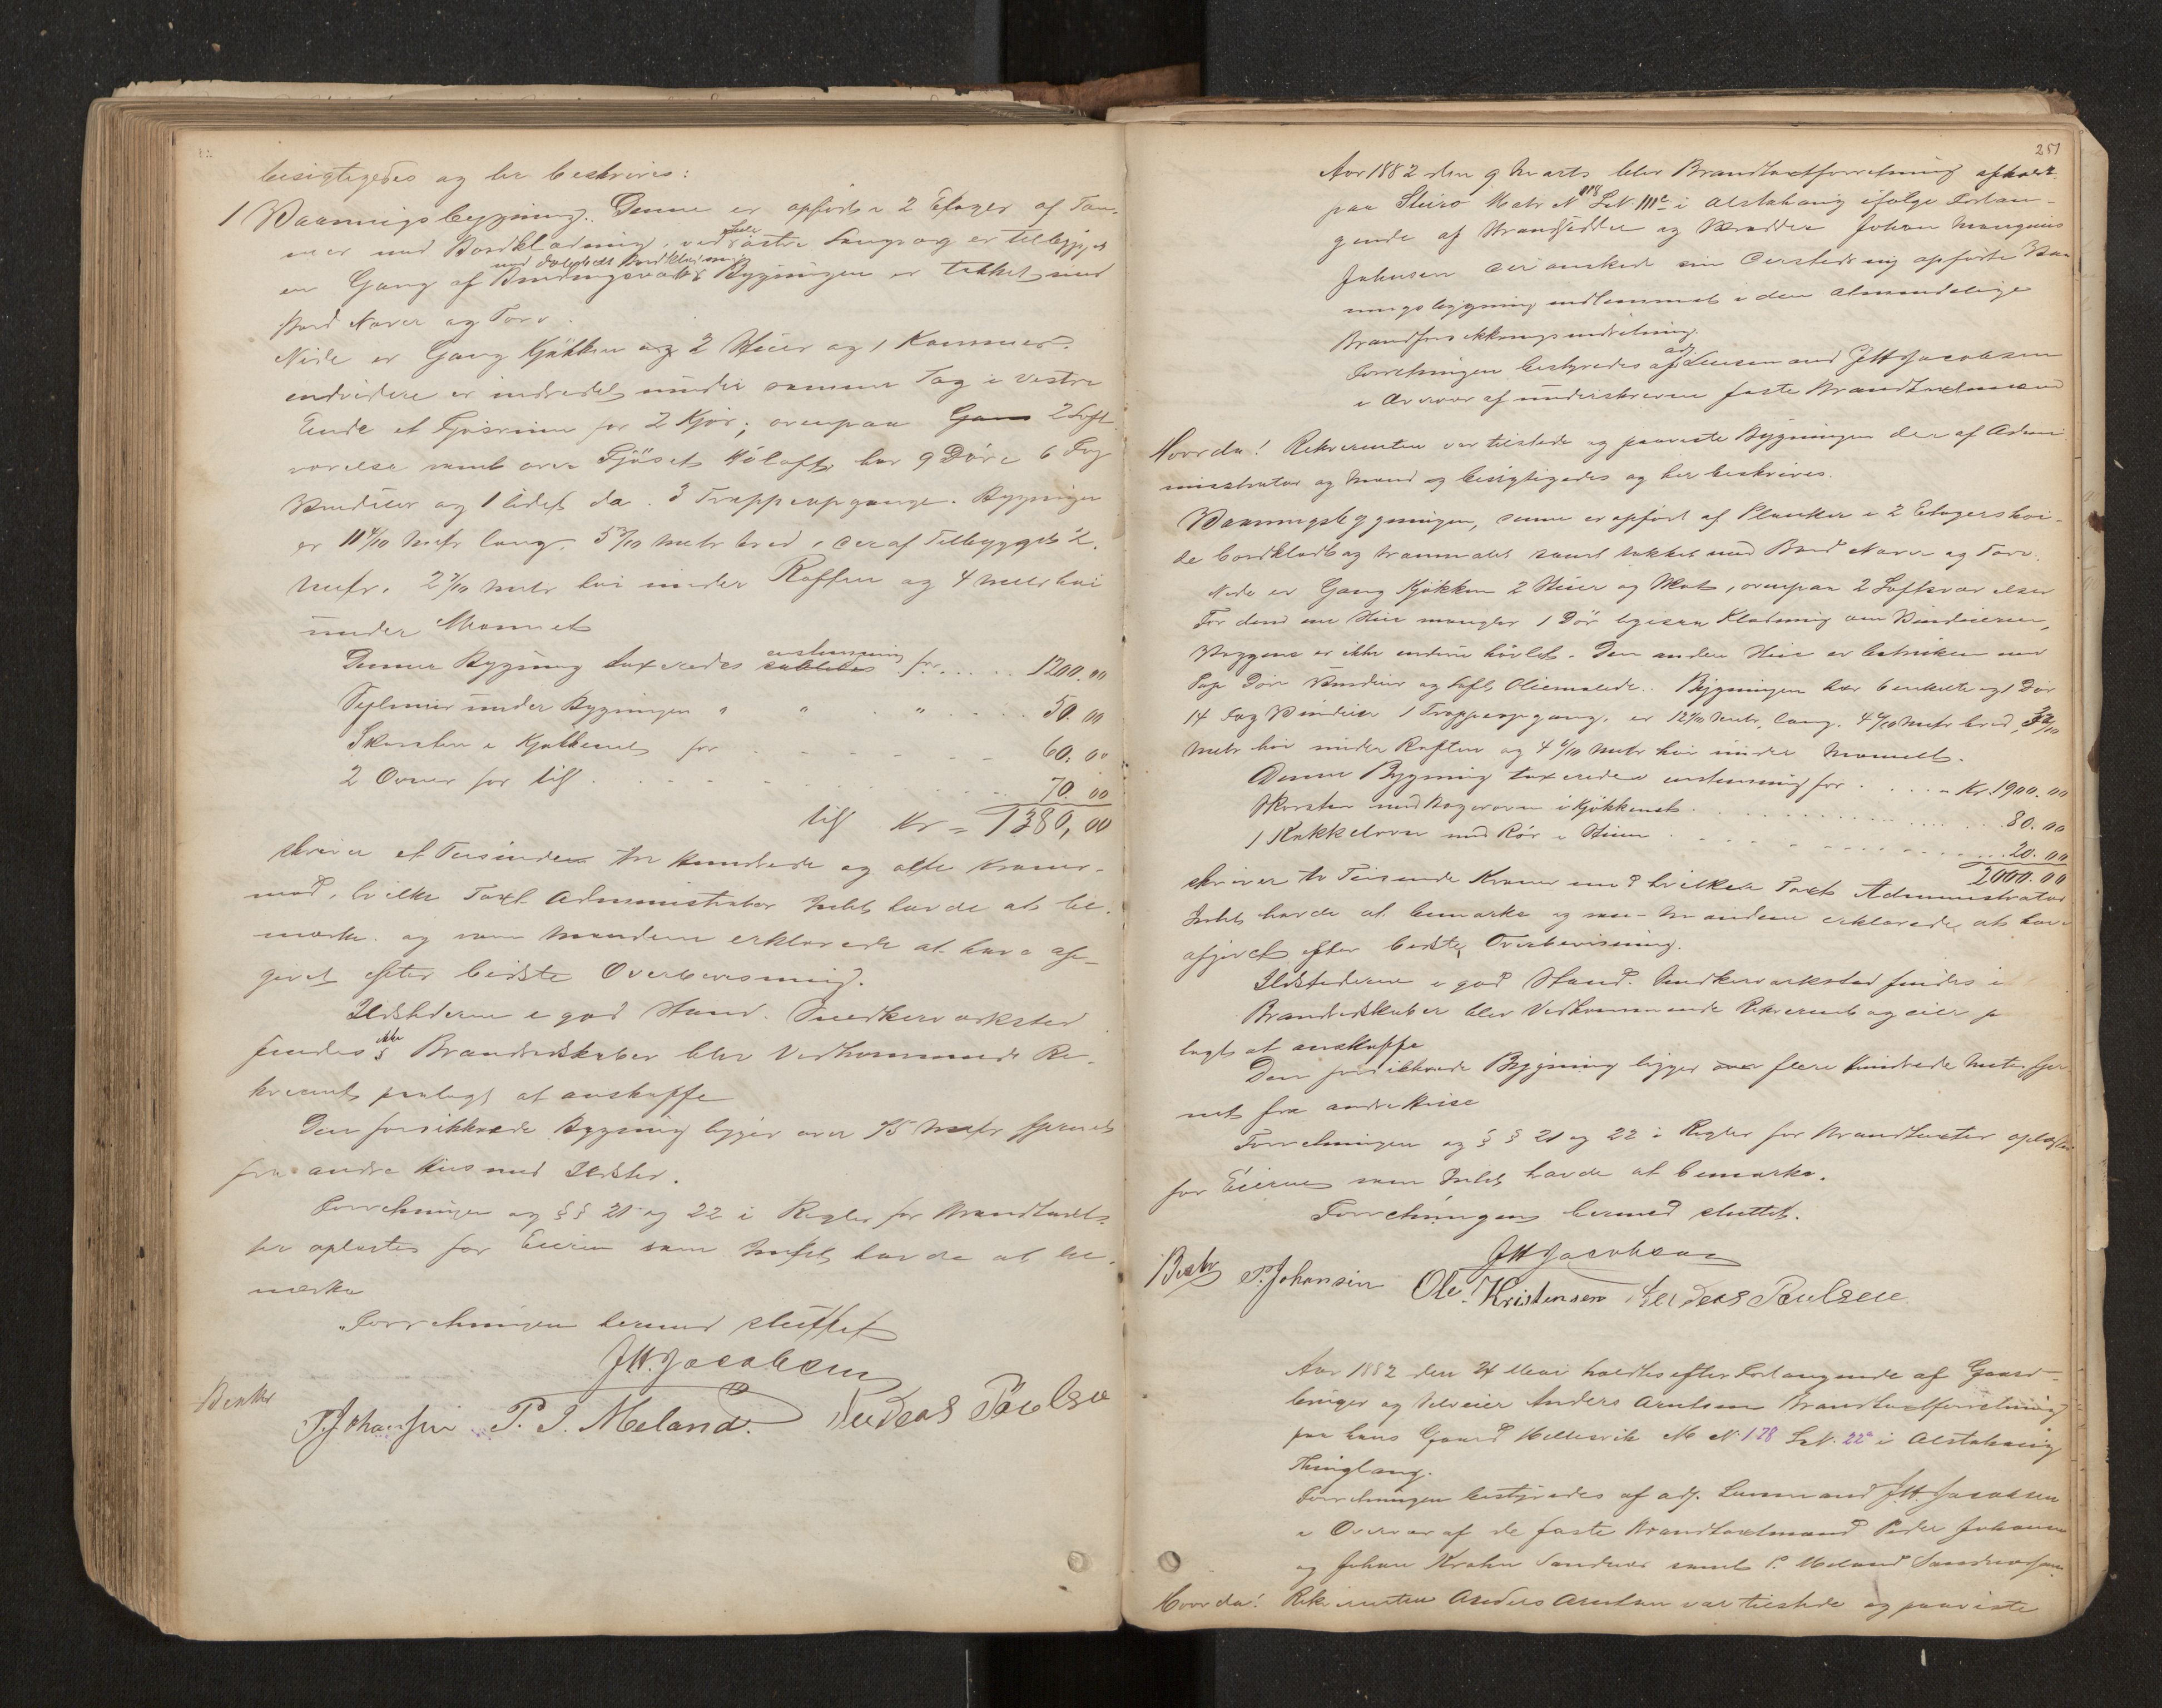 besigtigedes og her beskrives:
1 Vaaningsbygning. Denne er opført i 2 Etager af Tøm-
mer med Bordklædning, ved østre Langvæg er tilbygget
en Gang af Bindingsværk med dobbelt Bordklædning. Bygningen er tækket med
Bord Næver og Torv.
Nede er Gang Kjøkken og 2 Stuer og 1 Kammer.
endvidere er indredet under samme Tag i vestre
Ende et Fjøsrum for 2 Kjør; ovenpaa 2 Loft
værelse samt over Fjøset Høloft. har 9 Døre 6 Fag
Vinduer og 1 lidet da. 3 Trappeopgange. Bygningen
er 11 4/10 Metr lang. 5 3/10 Metr bred, deraf Tilbygget 2
Metr. 2 7/10 Metr høi under Raften og 4 Metr høi
under Mønnet
Denne Bygning taxeredes enstemmig for ..... 1200.00
under Bygningen " " " .... 50.00
Skorsten i Kjøkkenet for - - - - 60.00
2 Ovner for till . . . . . . 70.00
till Kr = 1380,00
skriver et Tusinde tre Hundrede og otte Kroner.
mod hvilke Taxt Administrator Intet havde at be-
mærke og som Mændene erklærede at have af-
givet efter bedste Overbevisning.
Ildstederne i god Stand. Snedkerværksted
findes ikke Brandredskaber blev Vedkommende Re-
kvirent paalagt at anskaffe
Den forsikkrede Bygning ligger over 75 Metr fjernet
fra andre Hus med Ildsted.
Forretningen og §§ 21 og 22 i Regler for Brandtaxt-
er oplæstes for Eieren som Intet havde at be-
mærke
Forretningen hermed sluttet
J.H. Jacobsen
P. Johansen P. J. Meland. Andeas Poulsen
251
Aar 1882 den 9 Marts blev Brandtaxtforretning afholdt
paa Matr N L.N. 111c i Alstahaug ifølge Forlan-
gende af Strandsidder og Johan
Johnsen der ønskede sin dersteds ny opførte Vaa-
ningsbygning indlemmet i den almindelige
Brandforsikkringsindretning.
Forretningen bestyredes af adj Lensmand J H Jacobsen
i Overvær af underskrevne faste Brandtaxtmænd
Hvorda! Rekvirenten var tilstede og paaviste Bygningen der af Admi-
nistrator og Mænd besigtigedes og her beskrives.
Vaaningsbygningen, denne er opført af Planker i 2 Etagers høi-
de bordklædt og samt tækket med Bord Næver og Torv.
Nede er Gang Kjøkken 2 Stuer og , ovenpaa 2 Loftsværelser
For den ene Stue mangler 1 Dør ligesaa Klædning om Vinduerne,
Væggene er ikke endnu høvlet. Den anden Stue er betrukken med
Pap Døre Vinduer og Loft Oliemalede. Bygningen har 6 enkelte og 1 Dør
14 Fag Vinduer 1 Trappeopgang. er 12 Metr. lang. 4 Metr bred,
Metr høi under Raften og 4 6/10 Metr høi under Mønnet.
Denne Bygning taxeredes enstemmig for .... Kr. 1900.00
Skorsten med Bagerovn i Kjøkkenet ......... 80.00
1 Kakkelovn med Rør i Stuen ......... 20.00
2000.00
skriver to Tusinde Kroner mod hvilken Taxt Administrator
Intet havde at bemærke og som Mændene erklærede at have
afgivet efter bedste Overbevisning.
Ildstederne i god Stand. Snedkerværksted findes i
Brandredskaber blev Vedkommende Rekvirent og eier p
lagt at anskaffe
Den forsikkrede Bygning ligger over flere Hundrede Meter fjer-
net fra andre Huse
Forretningen og §§ 21 og 22 i Regler for Brandtaxter oplæstes
for Eieren som Intet havde at bemærke.
Forretningen hermed sluttet.
J H Jacobsen
P. Johansen Ole Kristensen Andeas Poulsen
Aar 1882 den 24 Mai holdtes efter Forlangende af Gaard-
bruger og Selveier Anders Arntsen Brandtaxtforretning
paa hans Gaard M N. 178 L.N. 22a i Alstahaug
Thinglaug.
Forretningen bestyredes af adj. Lensmand J.H. Jacobsen
i Overvær af de faste Brandtaxtmænd Peder Johansen
og Johan Krohn Sandnes samt P. Meland
Hvorda! Rekvirenten Anders Arntsen var tilstede og paaviste